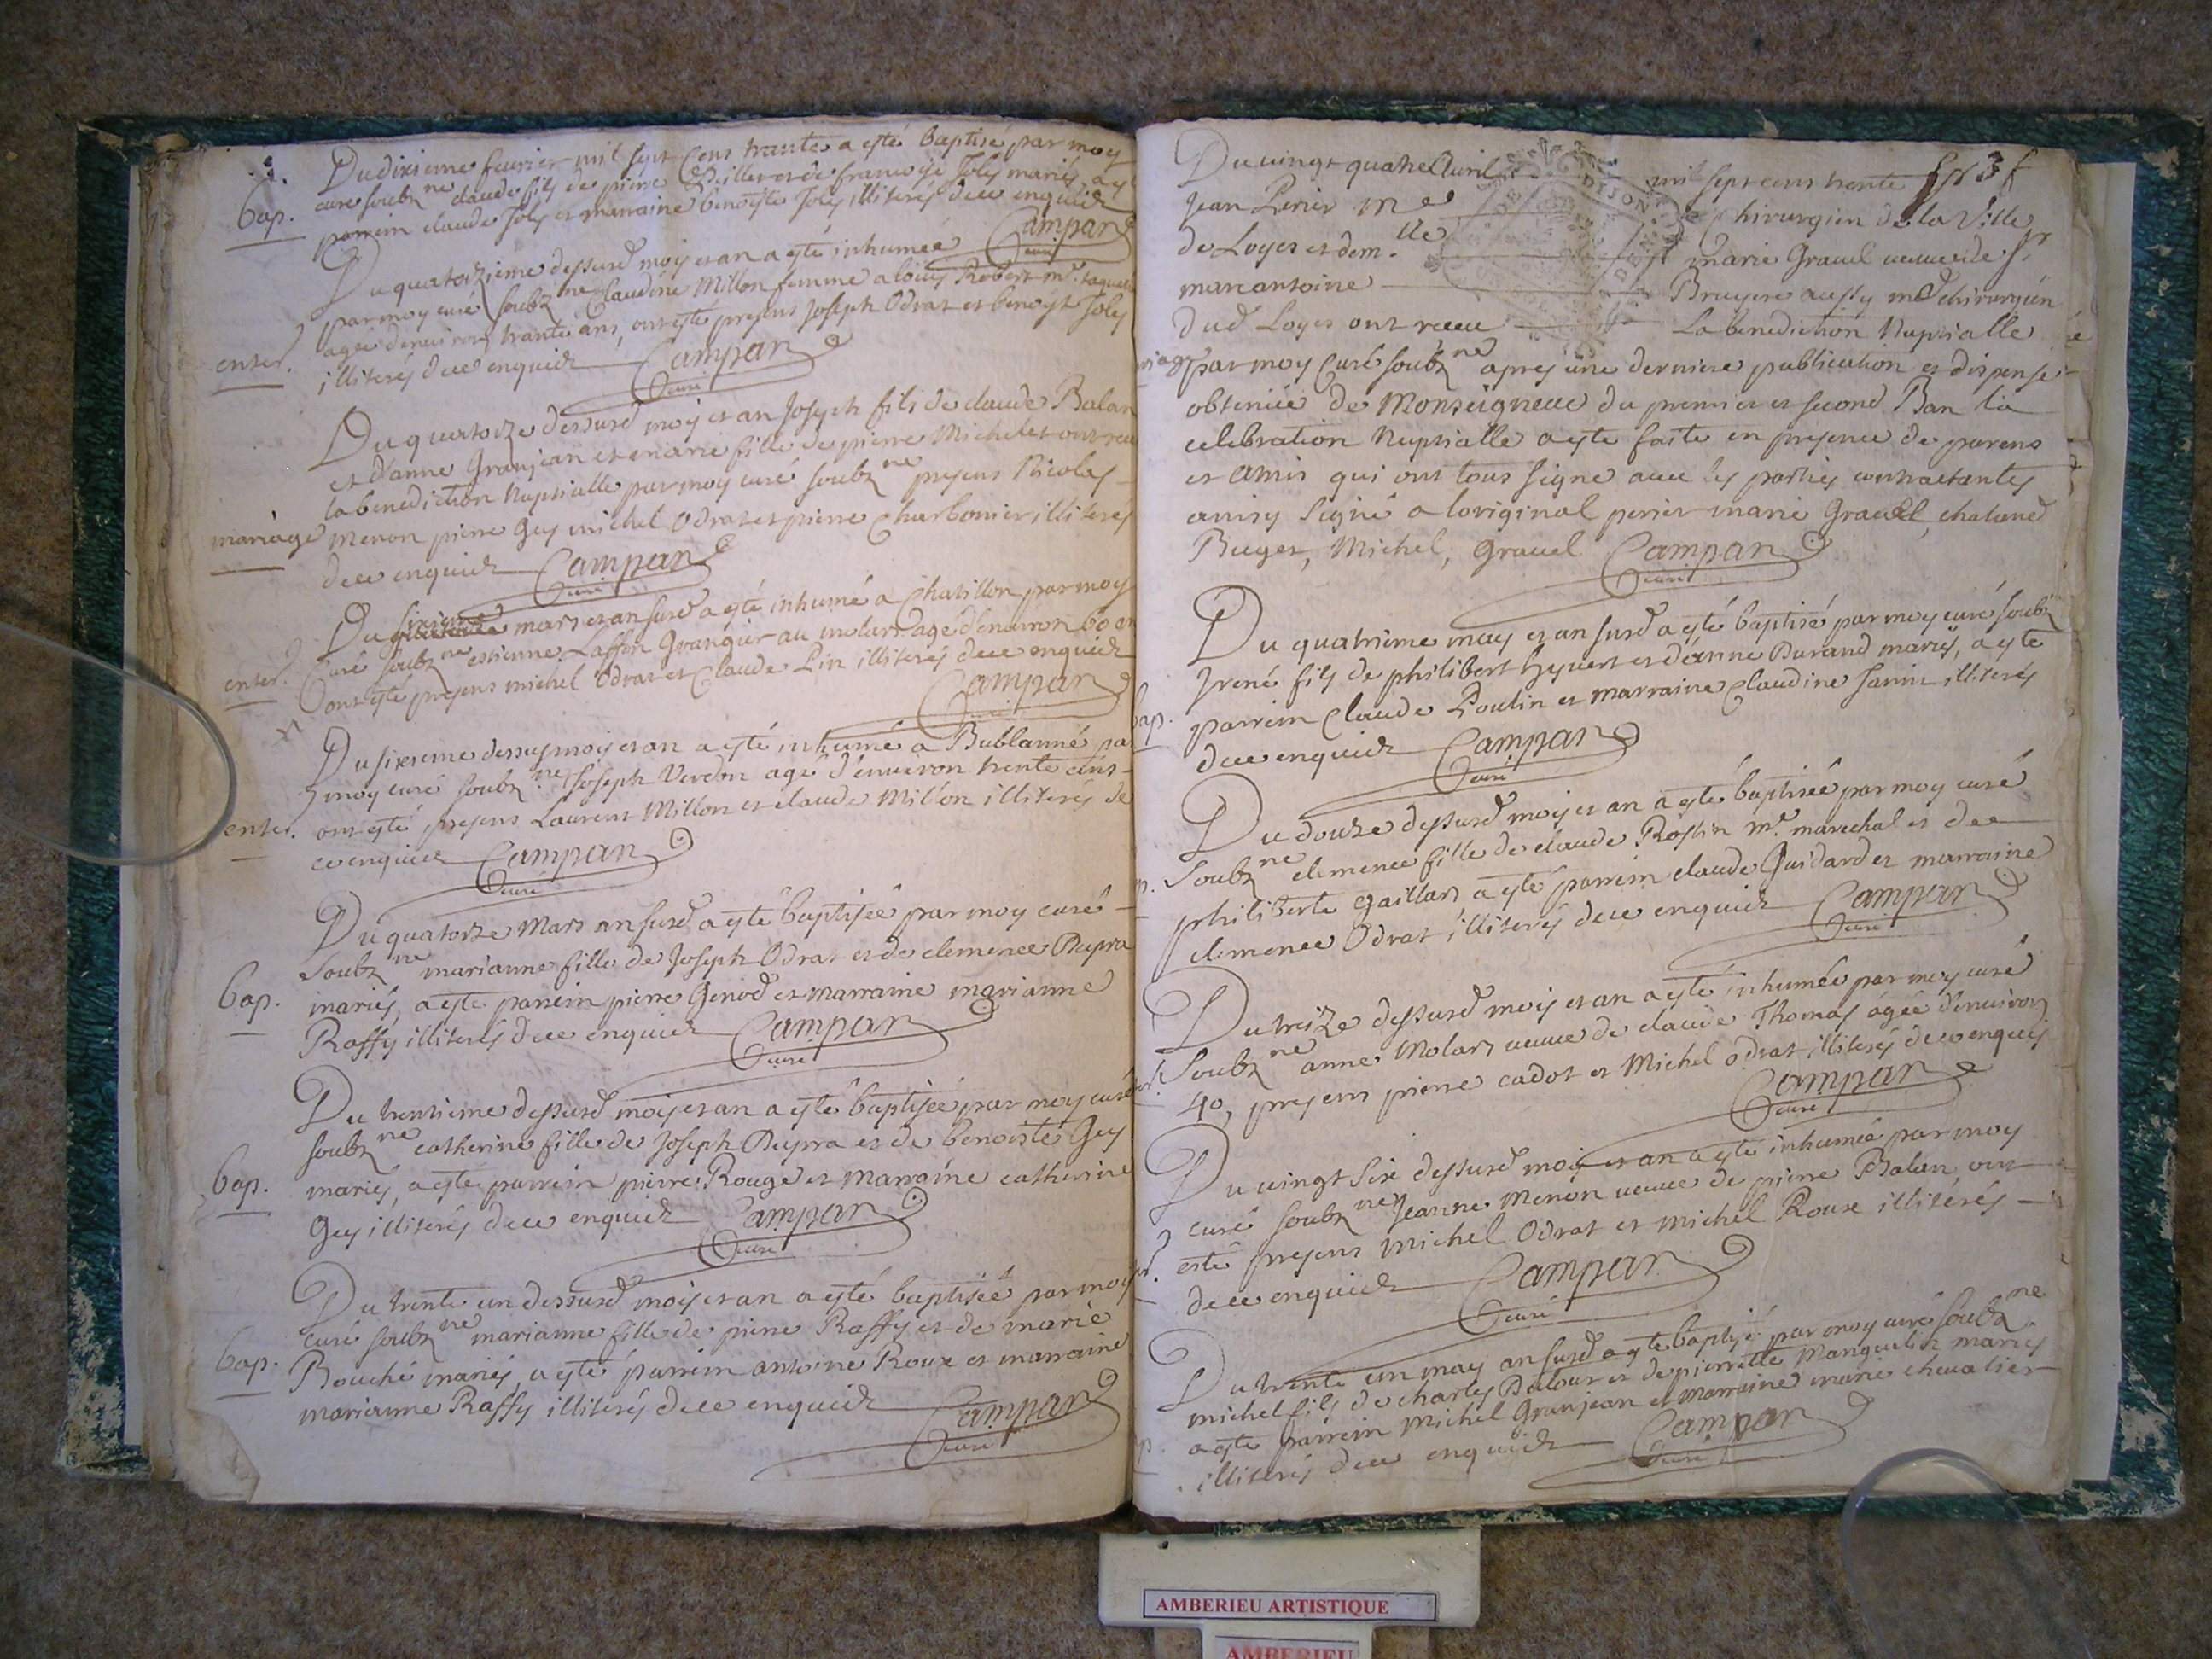 Du dixieme feurier mil sept cens trante a esté baptisé par moy
curé soubz ne claude fils de pierre et de francoise Joly mariés, a esté
Bap.
parrein claude Joly et marraine benoiste Joly illiterés de ce enquis
Campan
curé
Du quatorzieme dessusd mois et an a esté inhumée
par moy curé soubz ne Claudine Millon femme a loüis Robert me.
enter.
agée denuiron trante ans, ont esté presens Joseph Odrat et benoyt Joly
illiterés de ce enquis Campan
curé
Du quatorze dessusd mois et an Joseph fils de claude Balan
et danne Granjean et marie fille de pierre Michelet ont receu
la benediction Nuptialle par moy curé soubz ne presens Nicolas
mariage
Menon pierre Gey michel Odrat et pierre Charbonier illiterés
de ce enquis Campan
curé
Du sixieme mars et an susd a esté inhumé a Chatillon par moy
enter.
Curé soubz ne estienne Laffon Grangier au molard agé denuiron 60 an
ont esté presens michel Odrat et Claude Pin illiterés de ce enquis
Campan
curé
Du sixieme dessus mois et an a esté inhumé a Bublanné par
moy curé soubz ne Joseph Verdon agé d'enuiron trente ans
enter.
ont esté presens Laurent Millon et claude Millon illiterés de
ce enquis Campan
curé
Du quatorze Mars an susd a esté baptisée par moy curé
soubz ne marianne fille de Joseph Odrat et de clemence Dupra
Bap.
mariés, a esté parrein pierre Genod et Marraine marianne
Raffy illiterés de ce enquis Campan
curé
Du trentieme dessusd mois et an a esté baptisée par moy curé
soubz ne catherine fille de Joseph Dupra et de benoiste Gey
Bap.
mariés, a esté parrein pierre Rouge et Marraine catherine
Gey illiterés de ce enquis Campan
curé
Du trente un dessusd mois et an a esté baptisée par moy
curé soubz ne marianne fille de pierre Raffy et de marie
Bap.
Bouché mariés, a esté parrein antoine Roux et marraine
marianne Raffy illiterés de ce enquis Campan
curé
Du uingt quatre Auril mil sept cens trente
Jean Perier me Chirurgien de la Ville
de Loyes et dem. lle marie Grauel ueuue de Sr
marc antoine Bruyere aussy me chirurgien
dud Loyes ont receu La benediction Nuptialle
par moy Curé soubz ne apres une derniere publication et dispense
obtenüe de Monseigneur du premier et second Ban la
celebration Nuptialle a esté faite en presence de parens
et amis qui ont tous signe auec les parties contractantes
ainsy Signé a loriginal perier marie Grauel, chaland
Buget, Michel, Grauel Campan
curé
Du quatrieme may et an susd a esté baptisé par moy curé soubz
Irené fils de philibert et d'anne Durand mariés, a esté
Bap.
parrein Claude Poulin et Marraine Claudine Janin illiterés
de ce enquis Campan
curé
Du douze dessusd mois et an a esté baptisée par moy curé
soubz ne clemence fille de claude Rostin me. marechal et de
philiberte Gaillard a esté parrein claude Guidard et marraine
clemence Odrat illiterés de ce enquis Campan
curé
Du treize dessusd mois et an a esté inhumée par moy curé
soubz ne anne Molard ueuue de claude Thomas agée d'enuiron
40, presens pierre cadot et Michel odrat illiterés de ce enquis
Campan
curé
Du uingt six dessusd mois et an a esté inhumée par moy
curé soubz ne Jeanne Menon ueuue de pierre Balan ont
esté presens michel Odrat et michel Roux illiterés
de ce enquis Campan
curé
Du trente un may an susd a esté baptisé par moy curé soubz ne
michel fils de charles Dufour et de pierrette Manquelin mariés
a esté parrein michel Granjean et marraine marie cheualier
illiterés de ce enquis Campan
curé
AMBERIEU ARTISTIQUE
AMBERIEU